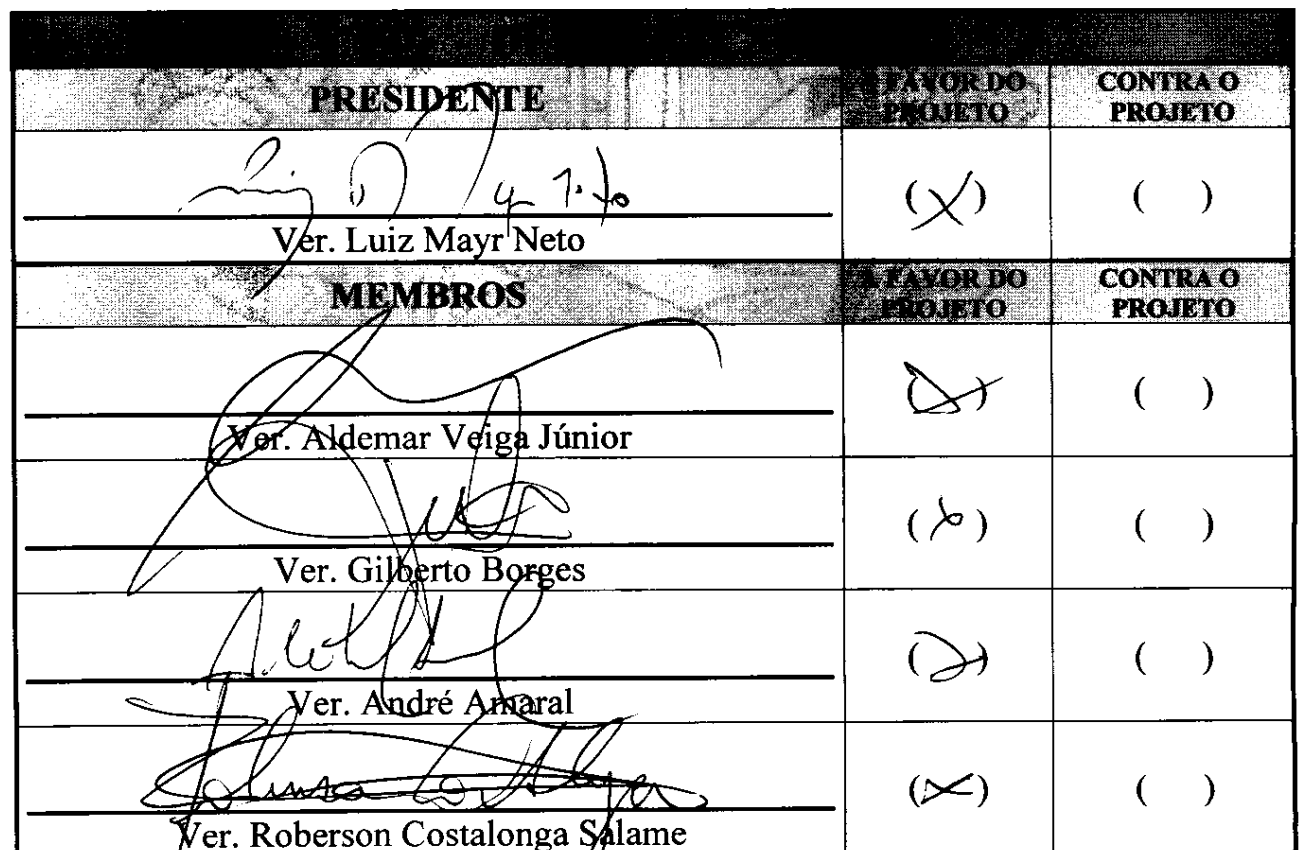 PRESIDENTE
A FAVOR DO
PROJETO
CONTRA O
PROJETO
(X)
( )
Ver. Luiz Mayr Neto
MEMBROS
A FAVOR DO
PROJETO
CONTRA O
PROJETO
(X)
( )
Ver. Aldemar Veiga Júnior
(X)
( )
Ver. Gilberto Borges
(X)
( )
Ver. André Amaral
(X)
( )
Ver. Roberson Costalonga Salame